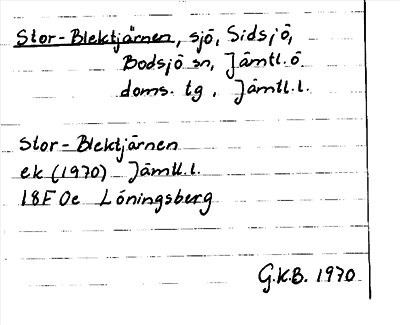 Stor-Blektjärnen, sjö, Sidsjö,
Bodsjö sn, Jämtl.ö
doms. tg, Jämtl.l.
Stor-Blektjärnen
ek (1970) Jämtl.l.
18F 0e Löningsberg
G.K.B. 1970